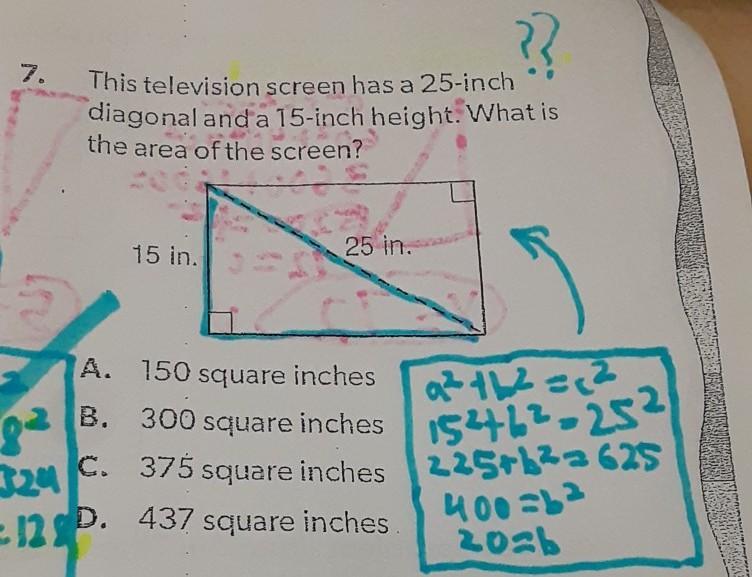 ??
7. This television screen has a 25-inch
diagonal and a 15-inch height. What is
the area of the screen?
15 in.
25 in.
A. 150 square inches
B. 300 square inches
C. 375 square inches
D. 437 square inches
a² + b² = c²
15² + b² = 25²
225 + b² = 625
400 = b²
20 = b
2
8²
324